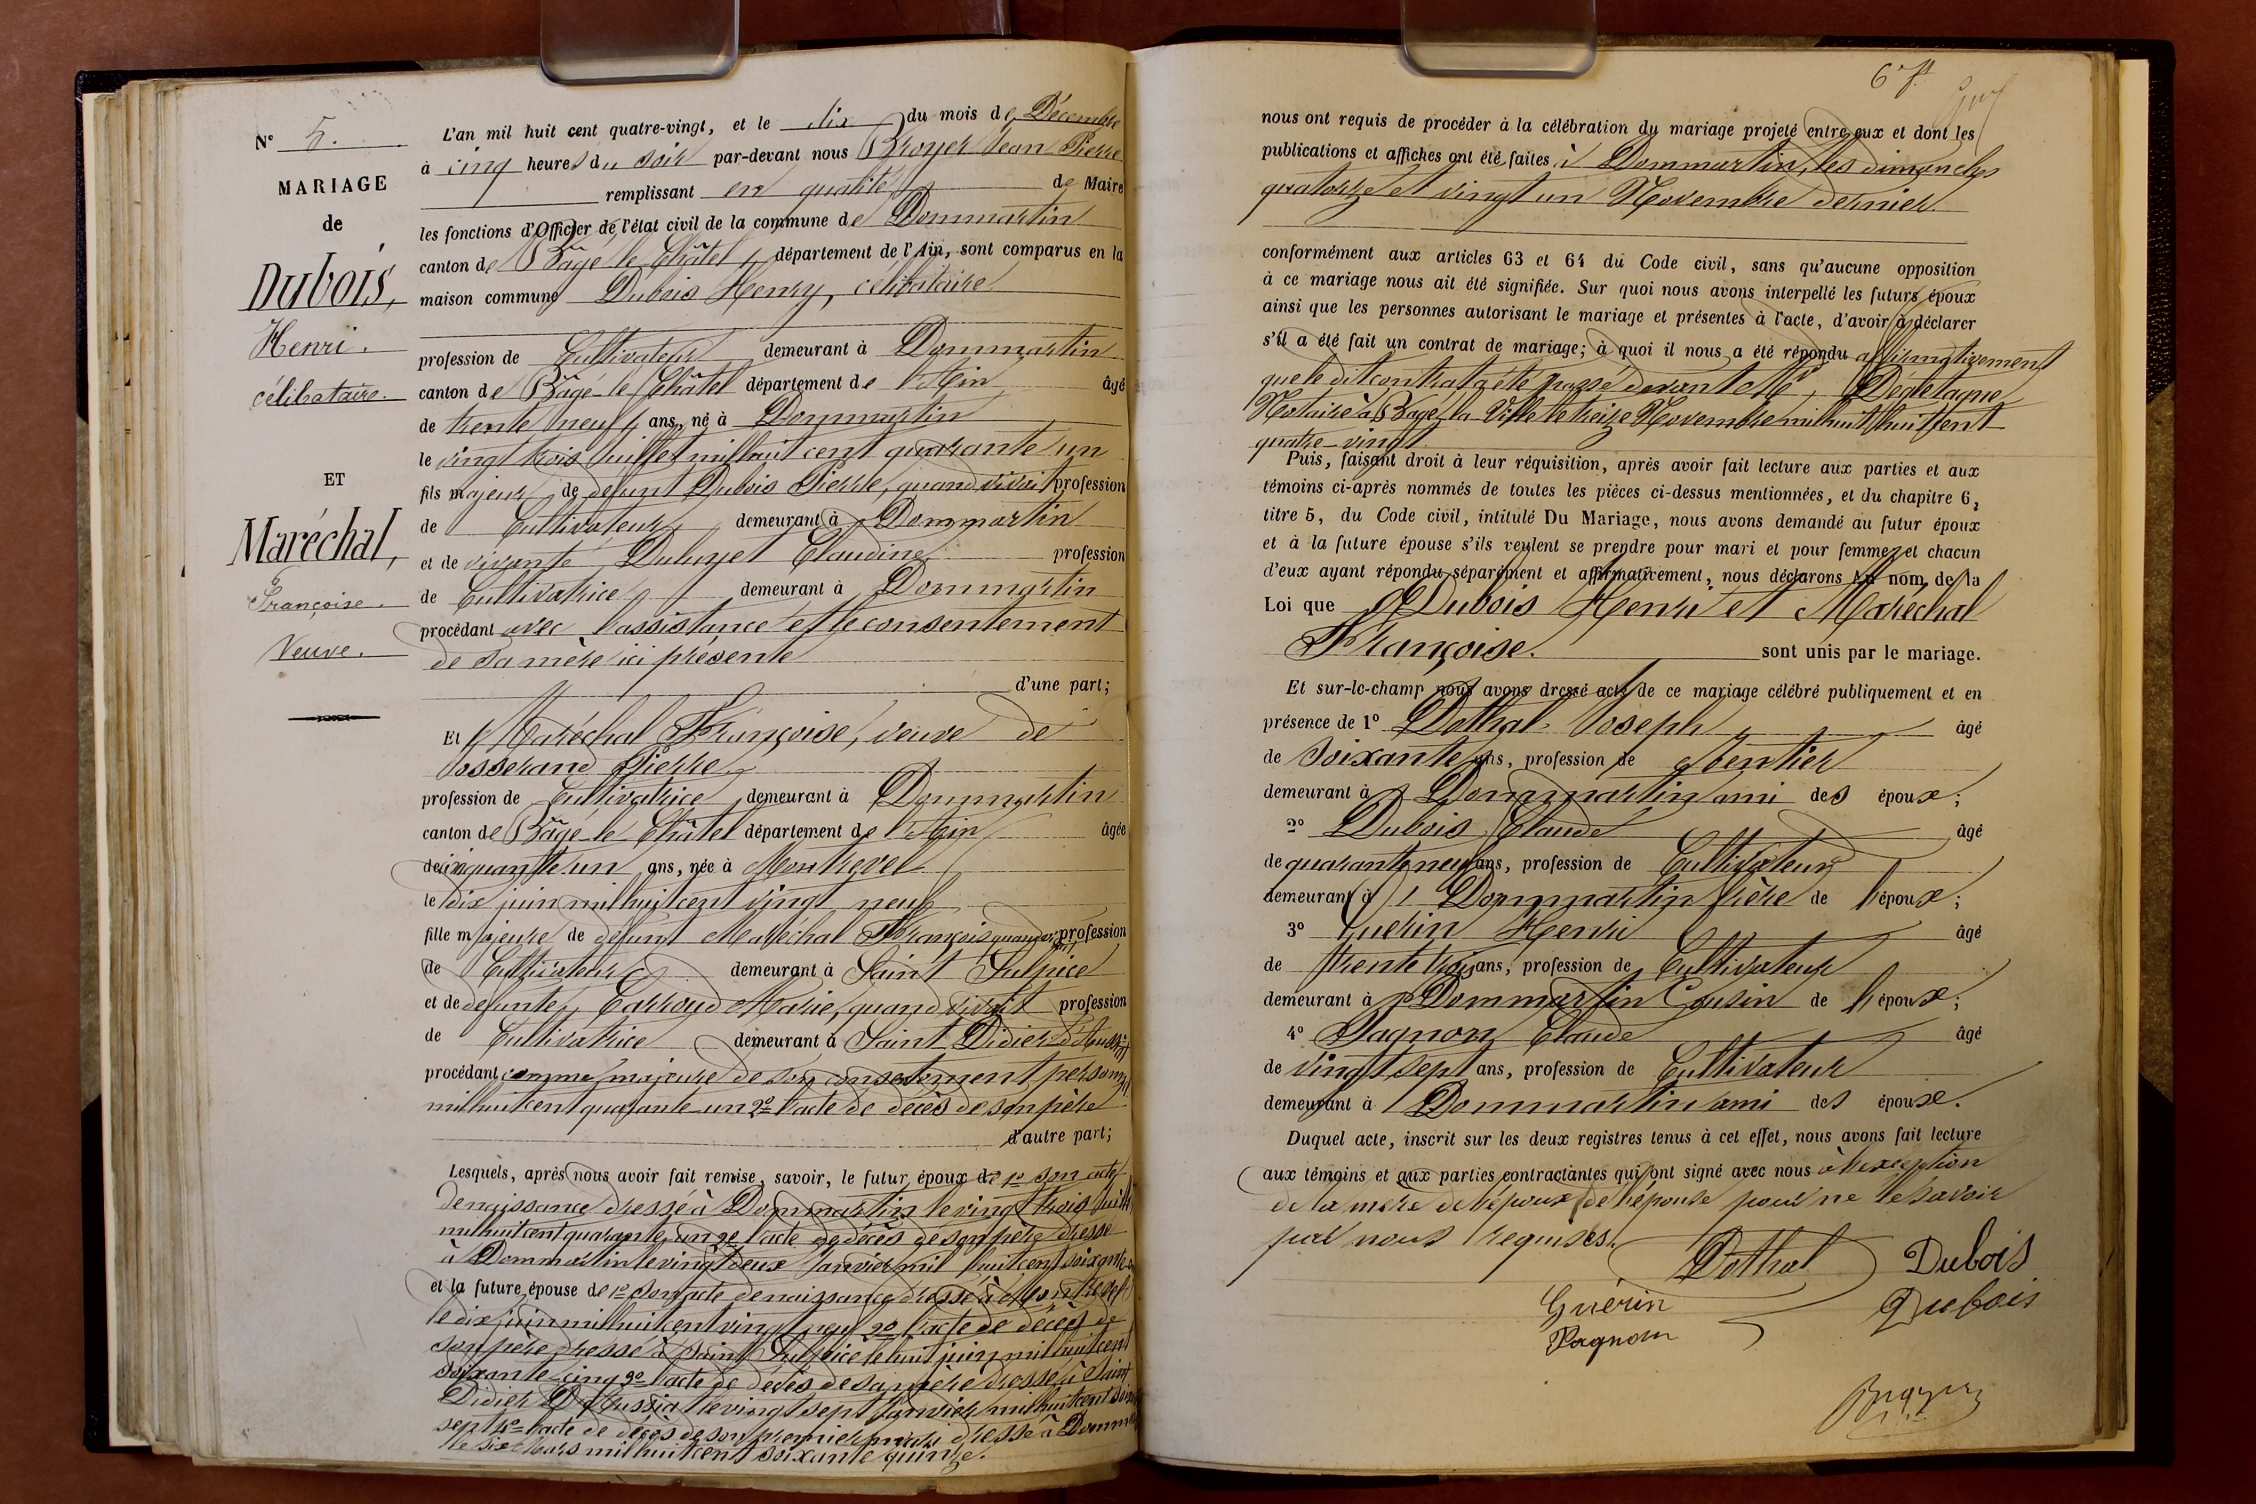 N° 5.
MARIAGE
de
Dubois,
Henri.
célibataire.
ET
Maréchal,
Françoise.
Veuve.
L'an mil huit cent quatre-vingt, et le dix du mois de Décembre
à cinq heures du soir par-devant nous Broyer Jean Pierre
remplissant en qualité de Maire
les fonctions d'Officier de l'état civil de la commune de Dommartin
canton de Bâgé le Châtel, département de l'Ain, sont comparus en la
maison commune Dubois Henry, célibataire
profession de Cultivateur demeurant à Dommartin
canton de Bâgé-le-Châtel département de l'Ain âgé
de trente neuf ans, né à Dommartin
le vingt trois juillet mil huit cent quarante un
fils majeur de défunt Dubois Pierre, quand vivait profession
de Cultivateur, demeurant à Dommartin
et de vivante Claudine profession
de Cultivatrice demeurant à Dommartin
procédant avec l'assistance et le consentement
de sa mère ici présente
d'une part;
Et Maréchal Françoise, veuve de
Josserand Pierre,
profession de Cultivatrice demeurant à Dommartin
canton de Bâgé-le-Châtel département de l'Ain âgée
de cinquante un ans, née à Montrevel
le dix juin mil huit cent vingt neuf
fille majeure de défunt Maréchal François quand vivait profession
de Cultivateur demeurant à Saint Sulpice
et de défunte Carroud Marie, quand vivait profession
de Cultivatrice demeurant à Saint Didier d'Aussiat
procédant comme majeure de son consentement personnel
mil huit cent quarante-un 2° l'acte de décès de son père
d'autre part;
Lesquels, après nous avoir fait remise, savoir, le futur époux de 1° son acte
de naissance dressé à Dommartin le vingt trois juillet
mil huit cent quarante un 2° l'acte de décès de son père dressé
à Dommartin le vingt deux Janvier mil huit cent soixante
et la future épouse de 1° son acte de naissance dressé à Montrevel
le dix juin mil huit cent vingt neuf 2° l'acte de décès de
son père dressé à Saint Sulpice le huit juin mil huit cent
soixante-cinq 3° l'acte de décès de sa mère dressé à Saint
Didier D'Aussiat le vingt sept Janvier mil huit cent
sept 4° l'acte de décès de son premier mari dressé à Dommartin
le six Mars mil huit cent soixante quinze.
nous ont requis de procéder à la célébration du mariage projeté entre eux et dont les
publications et affiches ont été faites à Dommartin, les dimanches
quatorze et vingt un Novembre dernier
conformément aux articles 63 et 64 du Code civil, sans qu'aucune opposition
à ce mariage nous ait été signifiée. Sur quoi nous avons interpellé les futurs époux
ainsi que les personnes autorisant le mariage et présentes à l'acte, d'avoir à déclarer
s'il a été fait un contrat de mariage; à quoi il nous a été répondu affirmativement
que le dit contrat a été passé devant Me,
Notaire à Bâgé la Ville le treize Novembre mil huit huit cent
quatre-vingt
Puis, faisant droit à leur réquisition, après avoir fait lecture aux parties et aux
témoins ci-après nommés de toutes les pièces ci-dessus mentionnées, et du chapitre 6,
titre 5, du Code civil, intitulé Du Mariage, nous avons demandé au futur époux
et à la future épouse s'ils veulent se prendre pour mari et pour femme, et chacun
d'eux ayant répondu séparément et affirmativement, nous déclarons au nom de la
Loi que Dubois Henri et Maréchal
Françoise. sont unis par le mariage.
Et sur-le-champ nous avons dressé acte de ce mariage célébré publiquement et en
présence de 1° Dothal Joseph âgé
de soixante ans, profession de Rentier
demeurant à Dommartin ami des époux;
2° Dubois Claude âgé
de quarante neuf ans, profession de Cultivateur
demeurant à Dommartin frère de l'époux;
3° Guérin Henri âgé
de trente trois ans, profession de Cultivateur
demeurant à Dommartin Cousin de l'époux;
4° Pagnon Claude âgé
de vingt sept ans, profession de Cultivateur
demeurant à Dommartin ami des époux.
Duquel acte, inscrit sur les deux registres tenus à cet effet, nous avons fait lecture
aux témoins et aux parties contractantes qui ont signé avec nous à l'exception
de la mère de l'époux, de l'épouse pour ne le savoir
par nous requises.
Dothal Dubois
Guérin Dubois
Pagnon
Broyer